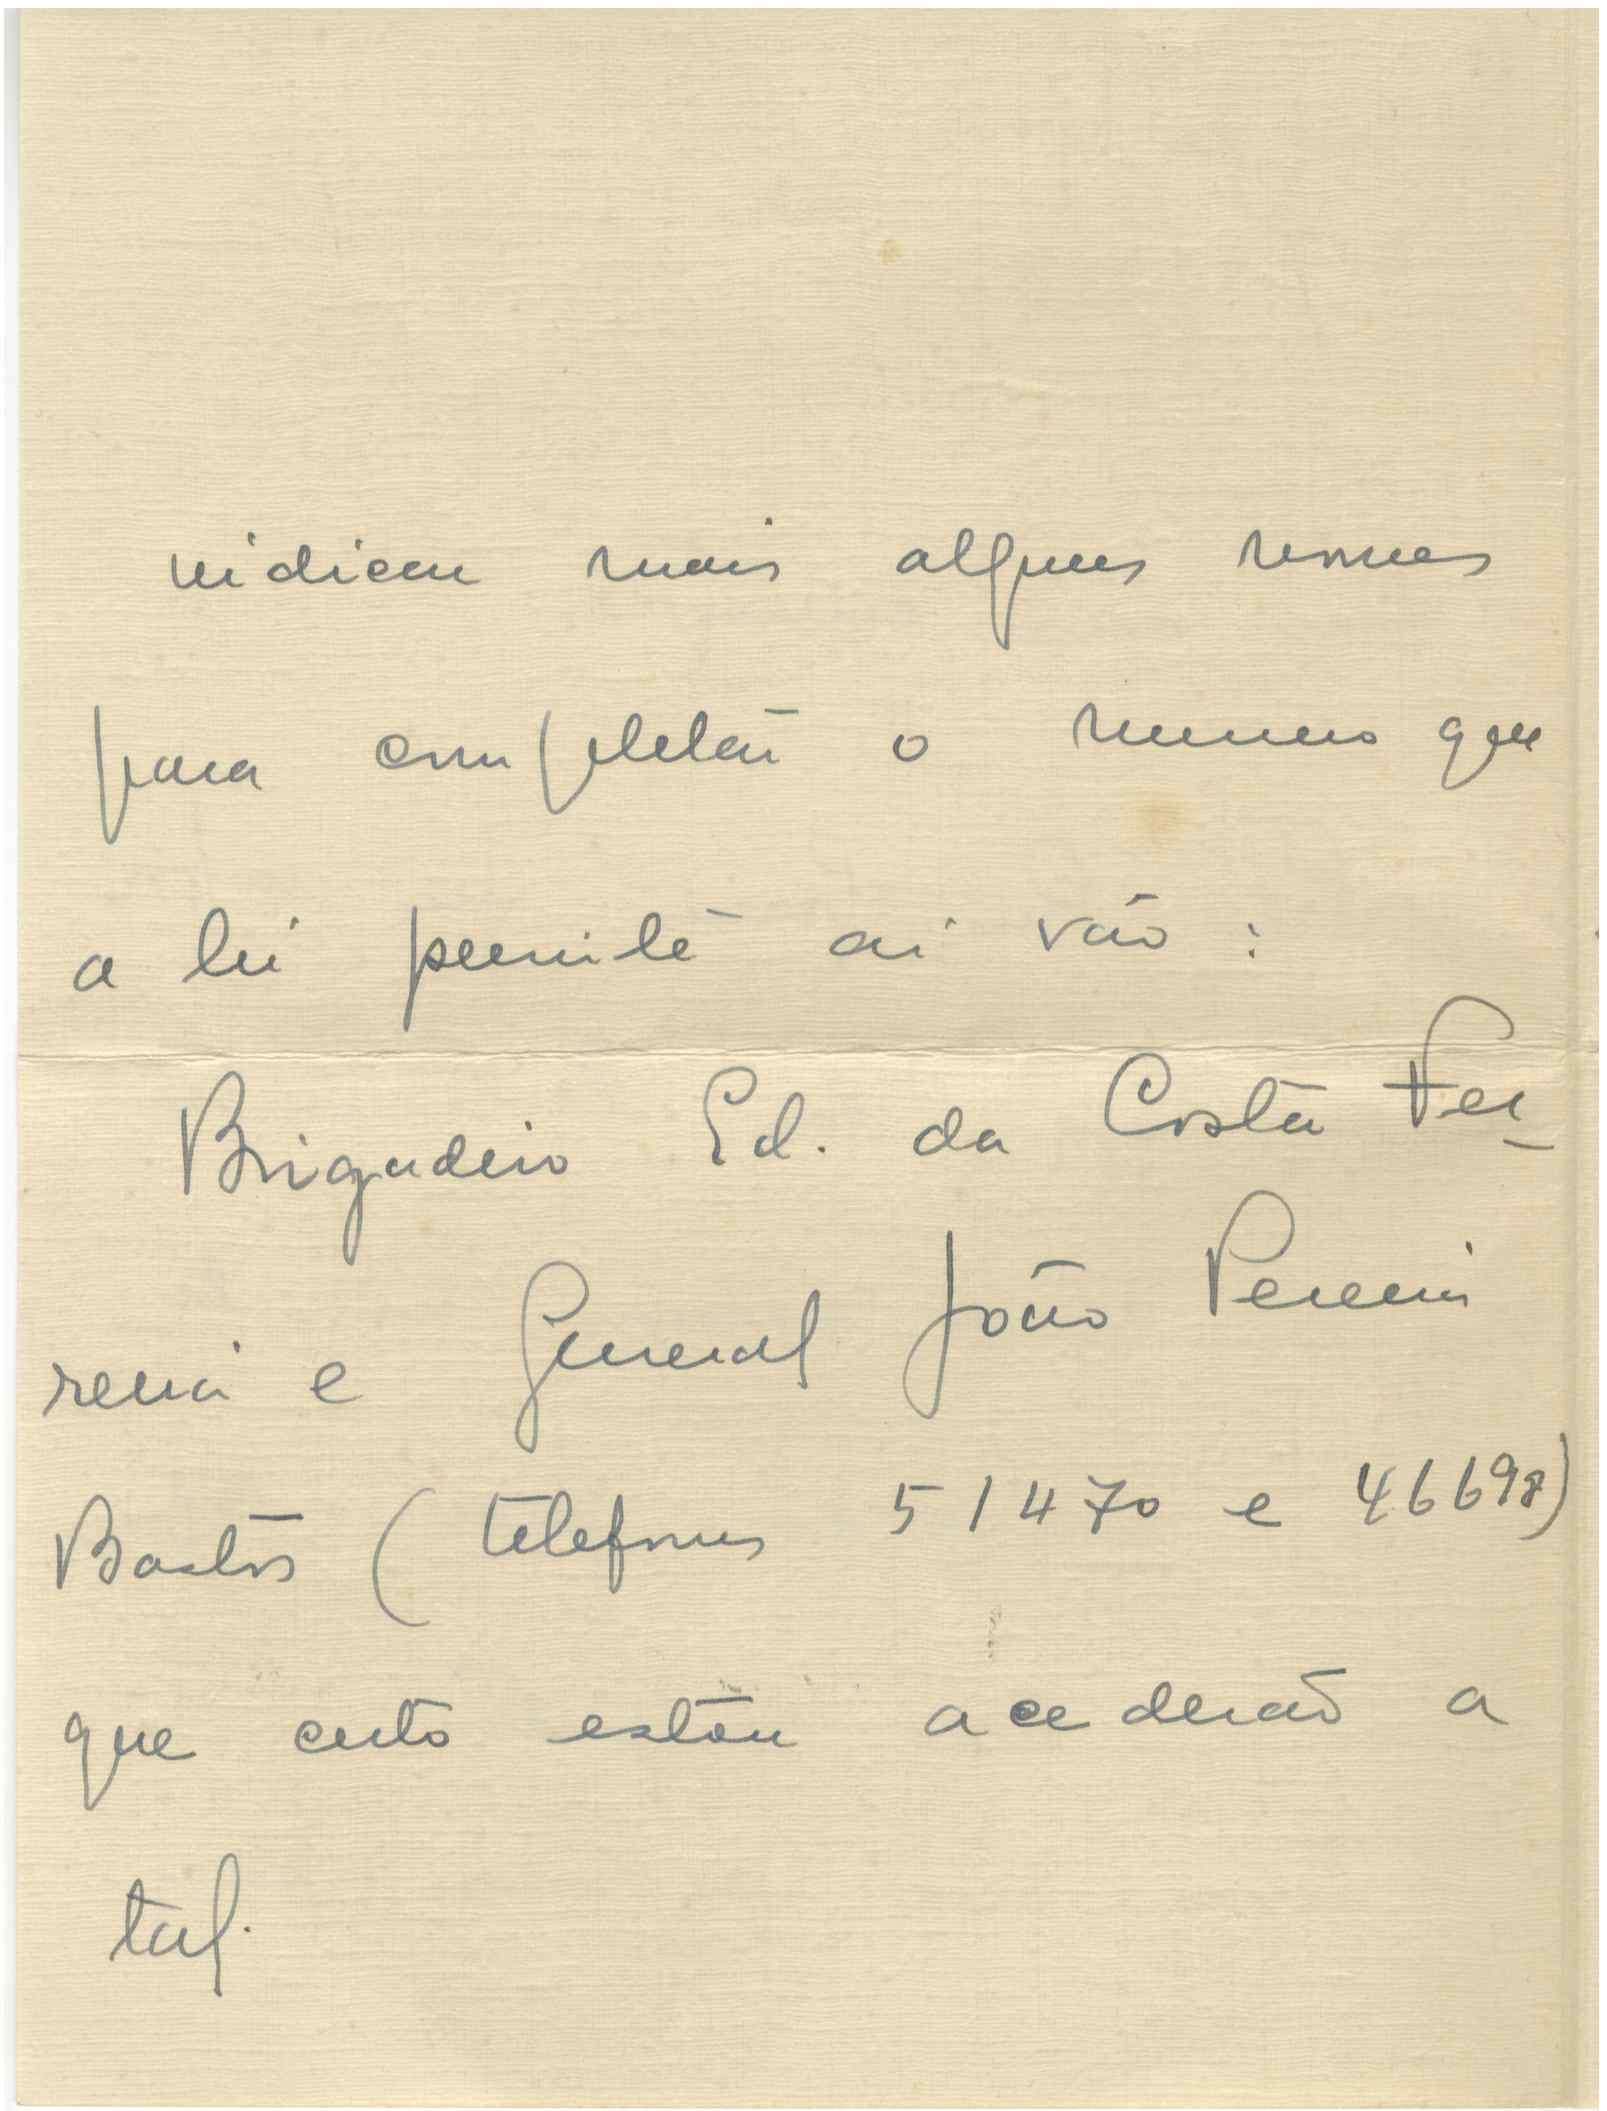 indicam mais alguns nomes
para completar o numero que
a lei permite aí vão:
Brigadeiro Ed. da Costa Fer-
reira e General João Pereira
Bastos (telefones 51470 e 46698)
que certo estou acederão a
tal.